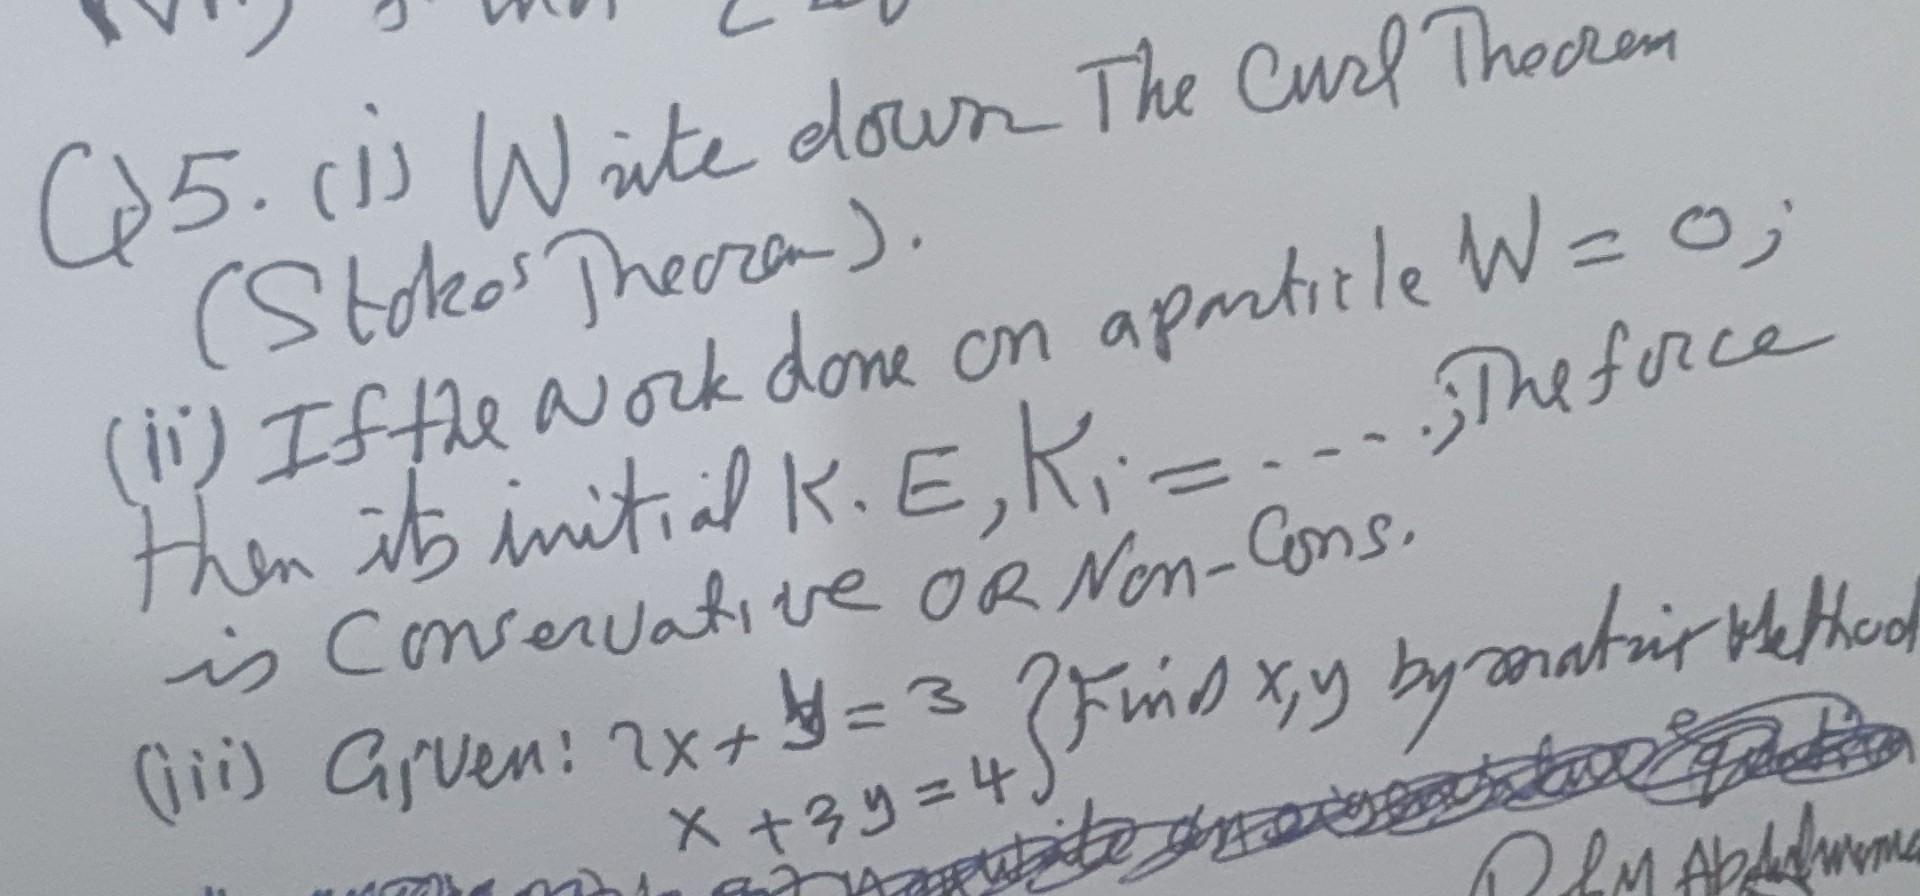 Q5. (i) Write down The Curl Theorem
(Stokes Theorem).
(ii) If the work done on a particle W = 0;
then its initial K.E, Ki = - - - - .; The force
is Conservative OR Non-Cons.
(iii) Given: 2x + y = 3 } Find x, y by matrix Method
x + 3y = 4